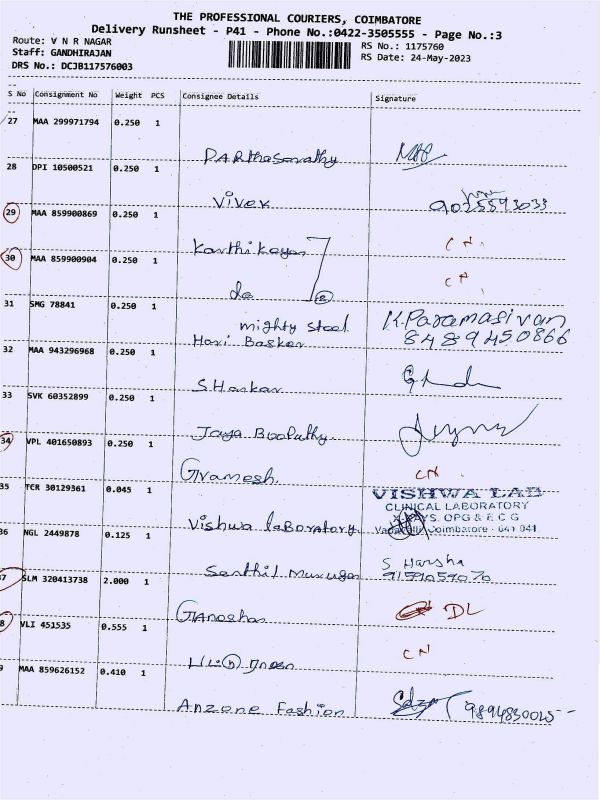 THE PROFESSIONAL COURIERS, COIMBATORE
Delivery Runsheet - P41 - Phone No.:0422-3505555 - Page No.:3
Route: V N R NAGAR
RS No.: 1175760
Staff: GANDHIRAJAN
RS Date: 24-May-2023
DRS No.: DCJB117576003
S No Consignment No Weight PCS Consignee Details Signature
27 MAA 299971794 0.250 1
PARthasarathy
28 DPI 10500521 0.250 1
Vivek 9025593033
29 MAA 859900869 0.250 1 CN
Karthikayan
30 MAA 859900904 0.250 1 CN
do 2
31 SMG 78841 0.250 1 K.Paramasivan
mighty steel 8489450866
Hari Basker
32 MAA 943296968 0.250 1
SHankar
33 SVK 60352899 0.250 1
Jaya Boopathy
34 VPL 401650893 0.250 1 CN
G ramesh
35 TCR 30129361 0.045 1 VISHWA LAB
CLINICAL LABORATORY
X-RAYS. OPG & E C G
Vishwa laBoratory Coimbatore - 641 041
36 NGL 2449878 0.125 1 S Harsha
Senthil Murugan 9159059070
37 SLM 320413738 2.000 1 DL
38 VLI 451535 0.555 1 CN
39 MAA 859626152 0.410 1
Anzone Fashion 9894830025